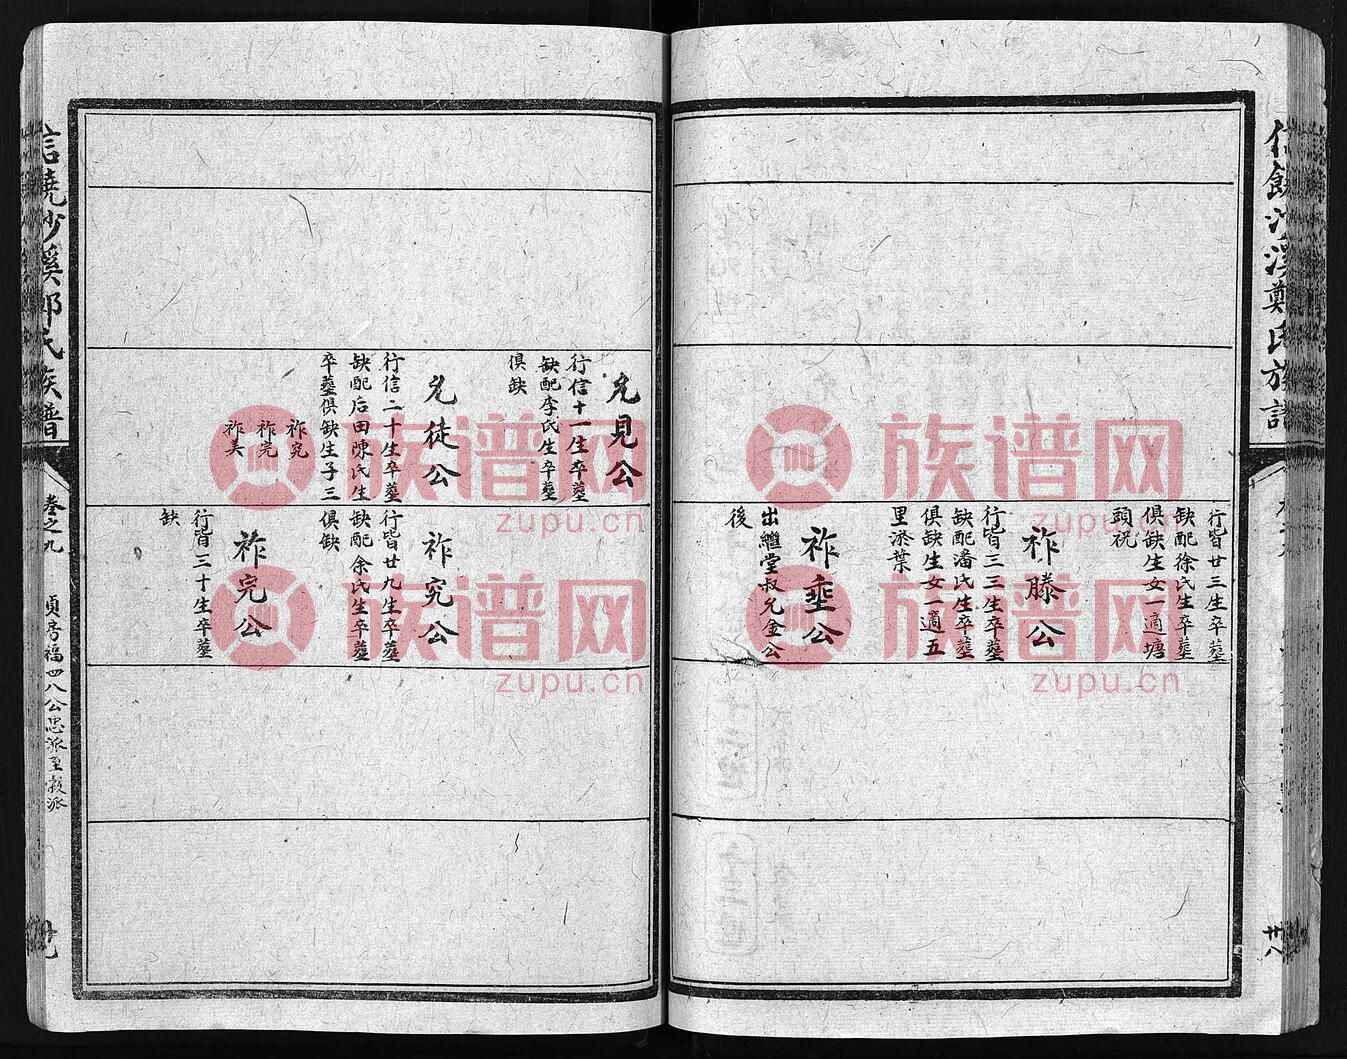 行皆廿三生卒墓
缺配徐氏生卒墓
俱缺生女一適塘
頭祝
祚滕公
行皆三三生卒墓
缺配潘氏生卒墓
俱缺生女一適五
里渁葉
祚埀公
出繼堂叔允金公
後
允見公
行信十一生卒墓
缺配李氏生卒墓
俱缺
允徒公
行信二十生卒墓
缺配后田陳氏生
卒墓俱缺生子三
祚宄
祚完
祚美
祚宄公
行皆廿九生卒墓
缺配余氏生卒墓
俱缺
祚完公
行皆三十生卒墓
缺
沙溪鄭氏族譜
卅八
信饒沙溪鄭氏族譜
卷之九
貞房福四八公忠派至穀派
卅九
族谱网
zupu.cn
族谱网
zupu.cn
族谱网
zupu.cn
族谱网
zupu.cn